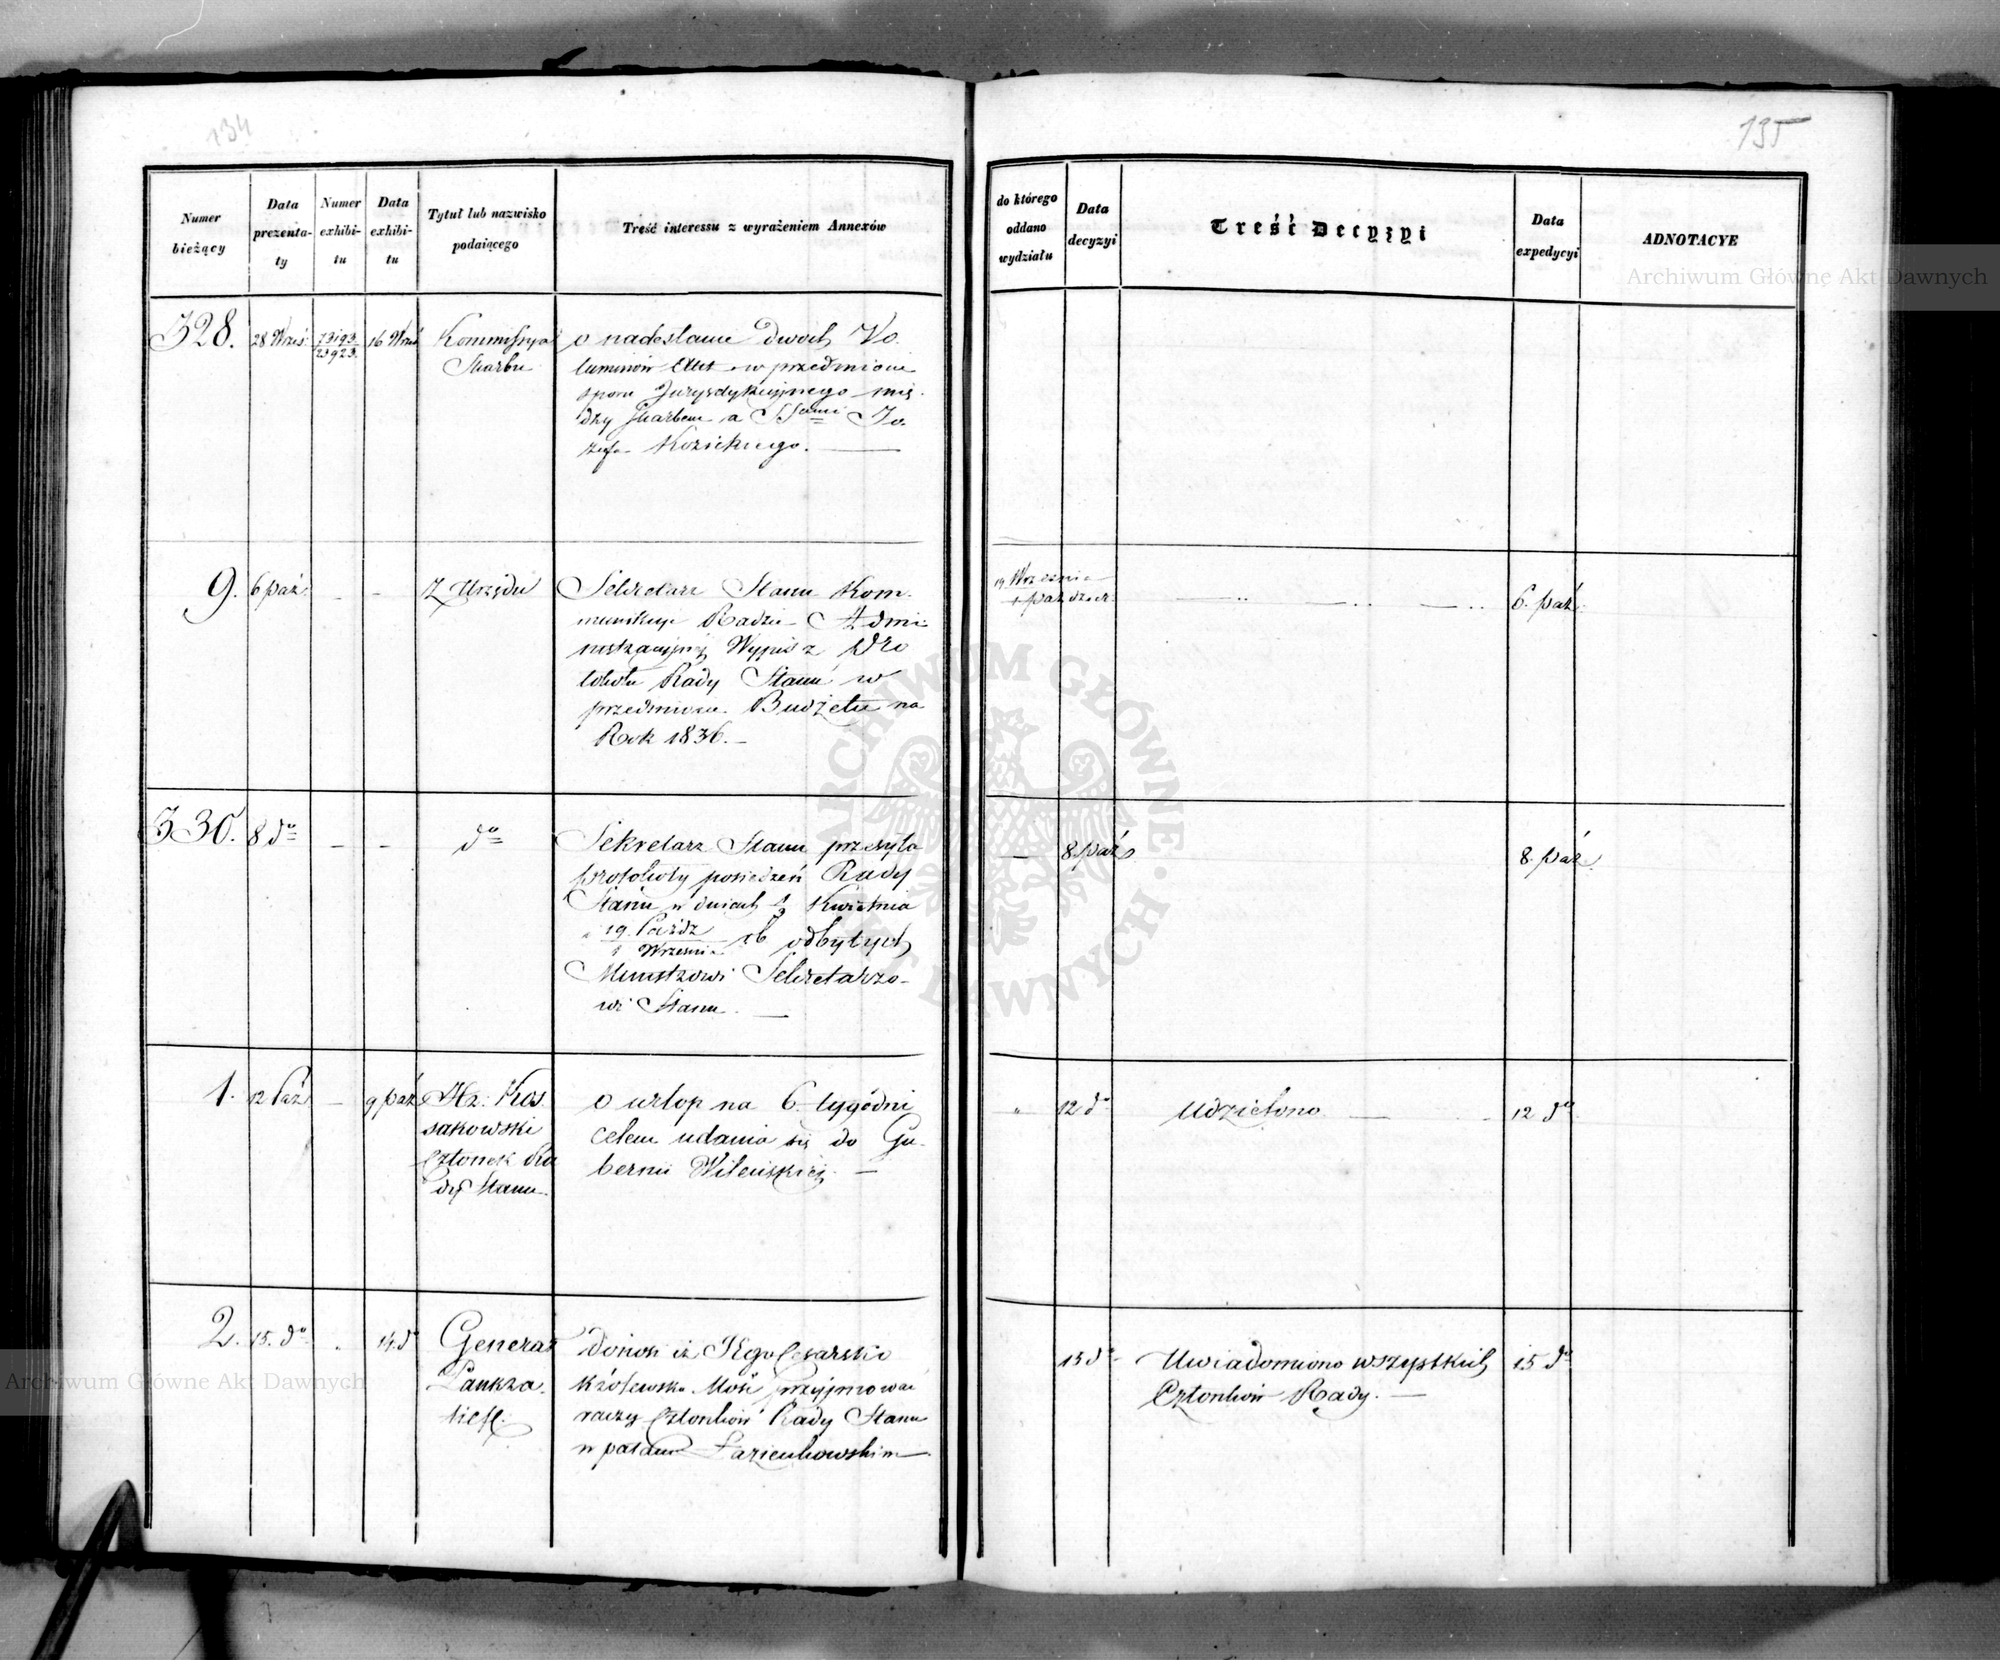 134
Numer bieżący
Data prezenta-ty
Numer exhibi-tu
Data exhibi-tu
Tytuł lub nazwisko podaiącego
Treść interessu z wyrażeniem Annexów
328.
28 Wrześ.
73193
23923.
16 Wrześ
Kommissya
Skarbu
o nadesłanie dwóch Vo.
luminów Akt w przedmiocie
sporu Jurysdykcyjnego mię.
dzy Skarbem a SSami Jó.
zefa Kozickiego.
9.
6 paź
-
-
Z Urzędu
Sekretarz Stanu Kom.
munikuje Radzie Admi-
nistracyjnéj Wypis z Pro
tokołu Rady Stanu w
przedmiocie Budżetu na
Rok 1836.-
330.
8 do
-
-
do
Sekretarz Stanu przesyła
protokoły posiedzeń Rady
Stanu w dniach Kwietnia
i 19. Paźdz
1 Września rb odbytych
Ministrowi Sekretarzo-
wi Stanu.
1.
12 Paź
-
9 paź
Hr: Kos
sakowski
Członek Ra
dy Stanu.
o urlop na 6. tygódni
celem udania się do Gu.
bernii Wileńskiéj.
2.
15. do
"
14. d
Generał
Pankra.
tieff.
donosi iż JEgo Cesarsko
królewska Mość przyjmować
raczy Członków Rady Stanu
w pałacu Łazienkowskim
135
do którego oddano wydziału
Data decyzyi
Treść Decyzyi
Data expedycyi
ADNOTACYE
19 Września
1. paździer.
6. paź.
-
8. paź
8. paź.
"
12 do
Udzielono
12 do
15 do
Uwiadomiono wszystkich
Członków Rady.
15 do
Archiwum Główne Akt Dawnych
ARCHIWUM GŁÓWNE AKT DAWNYCH
Archiwum Główne Akt Dawnych